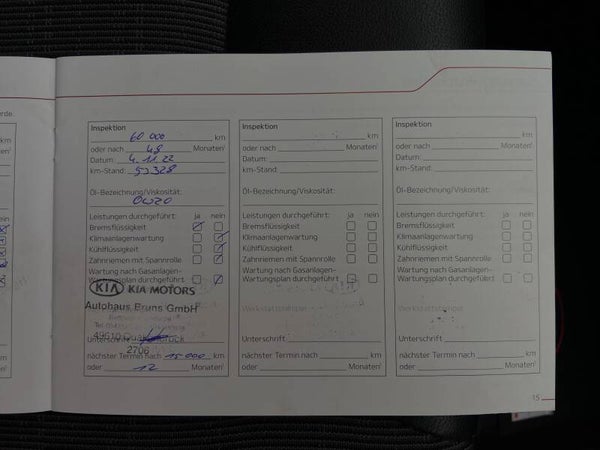 rde.
km
Monaten¹
Inspektion
60 000 km
oder nach 48 Monaten¹
Datum: 4.11.22
km-Stand: 53328
Öl-Bezeichnung/Viskosität:
0W20
Leistungen durchgeführt: ja nein
Bremsflüssigkeit
Klimaanlagenwartung
Kühlflüssigkeit
Zahnriemen mit Spannrolle
Wartung nach Gasanlagen-
Wartungsplan durchgeführt
KIA KIA MOTORS
Autohaus Bruns GmbH
49610 Quakenbrück
Unterschrift
2706
nächster Termin nach 15 000 km
oder 12 Monaten¹
Inspektion
km
oder nach Monaten¹
Datum:
km-Stand
Öl-Bezeichnung/Viskosität:
Leistungen durchgeführt: ja nein
Bremsflüssigkeit
Klimaanlagenwartung
Kühlflüssigkeit
Zahnriemen mit Spannrolle
Wartung nach Gasanlagen-
Wartungsplan durchgeführt
Werkstattstempel
Unterschrift
nächster Termin nach km
oder Monaten¹
Inspektion
km
oder nach Monaten¹
Datum:
km-Stand
Öl-Bezeichnung/Viskosität:
Leistungen durchgeführt: ja nein
Bremsflüssigkeit
Klimaanlagenwartung
Kühlflüssigkeit
Zahnriemen mit Spannrolle
Wartung nach Gasanlagen-
Wartungsplan durchgeführt
Werkstattstempel
Unterschrift
nächster Termin nach km
oder Monaten¹
15